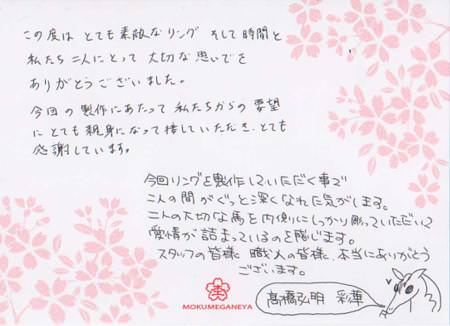 この度は とても素敵なリング そして時間と
私たち二人にとって 大切な思いでを
ありがとうございました。
今回の製作にあたって 私たちからの要望
にとても親身になって接していただき、とても
感謝しています。
今回リングを製作していただく事で
二人の間がぐっと深くなれた気がします。
二人の大切な馬を内側にしっかり彫っていただいて
愛情が詰まっているのを感じます。
スタッフの皆様 職人の皆様、本当にありがとう
ございます。
高橋弘明 彩華
MOKUMEGANEYA